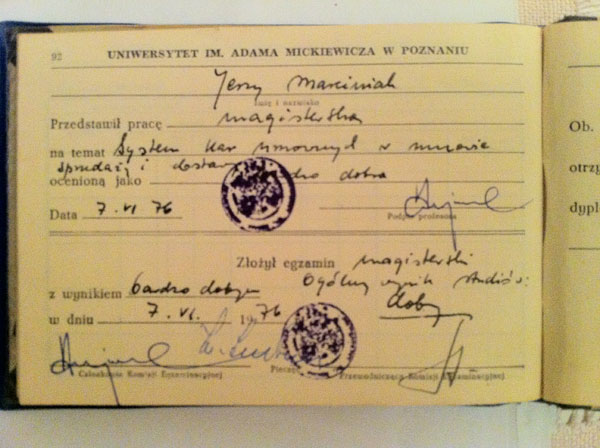 92 UNIWERSYTET IM. ADAMA MICKIEWICZA W POZNANIU
Jerzy Marciniak
imię i nazwisko
Przedstawił pracę magisterską
na temat System kar umownych w umowie
sprzedaży i dostawy
ocenioną jako bardzo dobra
Data 7.VI 76
Podpis profesora
Złożył egzamin magisterski
z wynikiem bardzo dobrym Ogólny wynik studiów:
w dniu 7.VI. 1976 dobry
Członkowie Komisji Egzaminacyjnej Pieczęć Przewodniczący Komisji Egzaminacyjnej
Ob.
otrzy
dypl